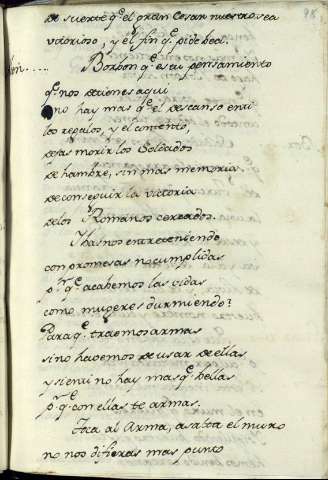 de suerte q̃ el gran Cesar nuestro vea
vitorioso, y el fin q̃ pide bea.
Borbon q̃ es tu pensamiento
q̃ nos detienes aqui
no hay mas q̃ el descanso en ti
los regalos, y el contento,
dejas morir los Soldados
de hambre, sin mas memoria
de conseguir la victoria
de los Romanos cercados.
I hasnos entreteniendo
con promesas no cumplidas
p.ͬ q̃ acabemos las vidas
como mugeres durmiendo?
Para q̃ traemos armas
si no havemos de usar de ellas
y si en ti no hay mas q̃ bellas
p.ͬ q̃ con ellas te armas.
Toca al Arma, asalta el muro
no nos difieras mas punto